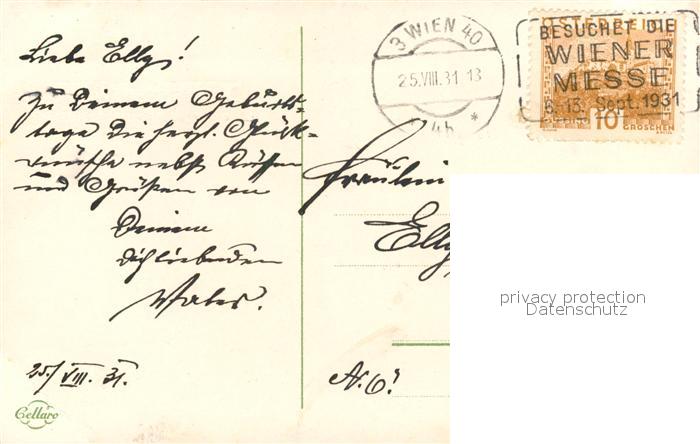 Liebe Elly!
Zu Deinem Geburts-
tage die herzl. Glück-
wünsche nebst Küssen
und Grüßen von
Deinem
dich liebenden
Vater.
25./VIII. 31.
Cellaro
3 WIEN 40
25.VIII.31 13
4b *
BESUCHET DIE
WIENER
MESSE
6.-13. Sept. 1931
ÖSTERREICH
10
GROSCHEN
Fräulein
Elly
N. 6!
privacy protection
Datenschutz